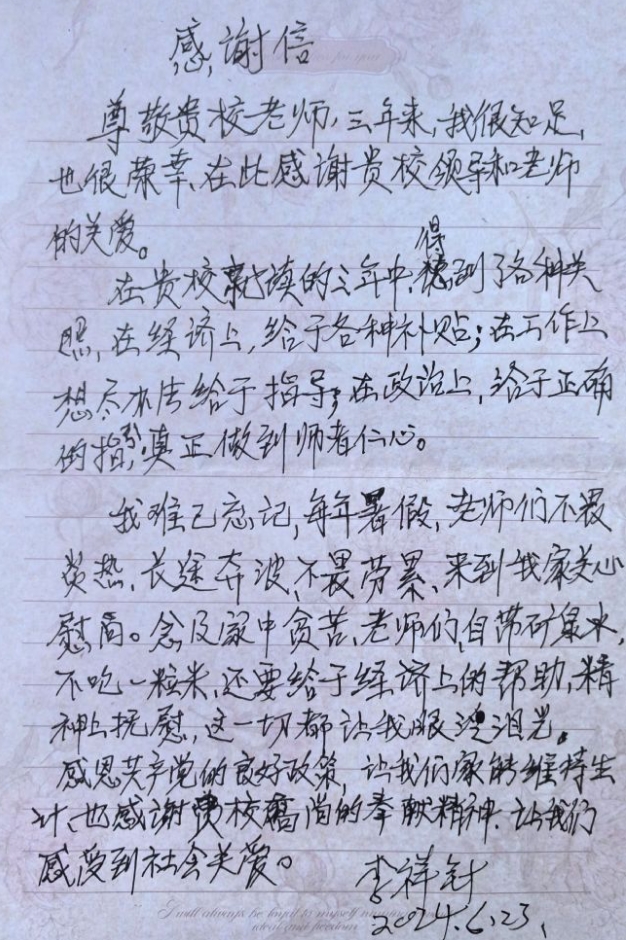 感谢信
尊敬贵校老师,三年来,我很知足,
也很荣幸、在此感谢贵校领导和老师
的关爱。
得
在贵校就读的三年中,到了各种关
照,在经济上,给于各种补贴;在工作上
想尽办法给于指导;在政治上,给于正确
的指引,真正做到师者仁心。
我难已忘记,每年暑假,老师们不畏
炎热、长途奔波、不畏劳累、来到我家关心
慰问。念及家中贫苦、老师们,自带矿泉水,
不吃一粒米,还要给于经济上的帮助,精
神上抚慰,这一切都让我眼泪光。
感恩共产党的良好政策,让我们家能维持生
计、也感谢贵校高尚的奉献精神.让我们
感受到社会关爱。
李祥针
2024.6.23.
I will always be loyal to myself
ideal and freedom